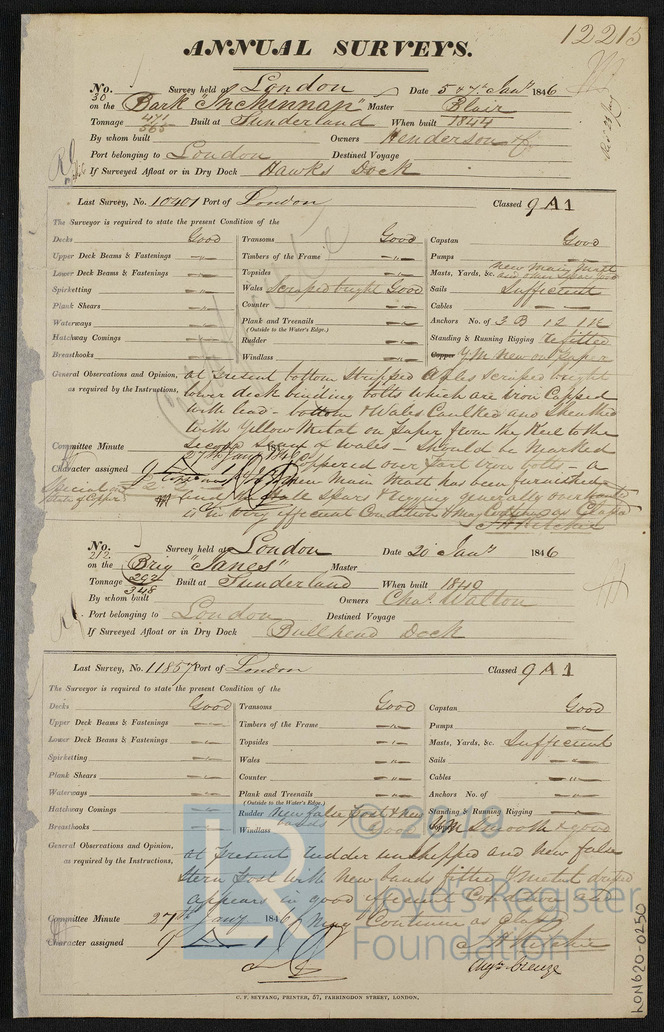 12215
ANNUAL SURVEYS.
No. 30 Survey held at London Date 5 & 7th Jany 1846
on the Bark "Inchinnan" Master Blair
Tonnage 471/565 Built at Sunderland When built 1844
By whom built Owners Henderson
Port belonging to London Destined Voyage
If Surveyed Afloat or in Dry Dock Hawks Dock
Last Survey, No. 10401 Port of London Classed 9 A 1
The Surveyor is required to state the present Condition of the
Decks Good Transoms Good Capstan Good
Upper Deck Beams & Fastenings " Timbers of the Frame " Pumps "
Lower Deck Beams & Fastenings " Topsides " Masts, Yards, &c. New Main Mast
Spirketting " Wales Scraped bright Good Sails Sufficient
Plank Shears " Counter " Cables "
Waterways " Plank and Treenails " Anchors No. of 3 B 1 S 1 K
(Outside to the Water's Edge.)
Hatchway Comings " Rudder " Standing & Running Rigging refitted
Breasthooks " Windlass " Copper Y.M. New on Paper
General Observations and Opinion, at present bottom Stripped Wales scraped bright
as required by the Instructions, lower deck binding bolts which are iron Capped
with lead - bottom & Wales Caulked and Sheathed
with Yellow Metal on Paper from the Keel to the
Committee Minute 27th Jany 1846 Second Seam of Wales - Should be Marked
Character assigned 9 A 1 Coppered over Iron bolts - a
new Main Mast has been furnished
Spars & rigging generally overhauled
is in very efficient Condition & may Continue as Class'd
J H Ritchie
No. 212 Survey held at London Date 20 Jany 1846
on the Brig "Janes" Master
Tonnage 294/348 Built at Sunderland When built 1840
By whom built Owners Chas. Walton
Port belonging to London Destined Voyage
If Surveyed Afloat or in Dry Dock Bullhead Dock
Last Survey, No. 11857 Port of London Classed 9 A 1
The Surveyor is required to state the present Condition of the
Decks Good Transoms Good Capstan Good
Upper Deck Beams & Fastenings " Timbers of the Frame " Pumps "
Lower Deck Beams & Fastenings " Topsides " Masts, Yards, &c. Sufficient
Spirketting " Wales " Sails "
Plank Shears " Counter " Cables "
Waterways " Plank and Treenails " Anchors No. of "
(Outside to the Water's Edge.)
Hatchway Comings " Rudder New false Post & New bands Standing & Running Rigging "
Breasthooks " Windlass Good Y M Smooth & good
General Observations and Opinion, at present rudder unshipped and New false
as required by the Instructions, Stern Post with New bands fitted
appears in good efficient Condition and
Committee Minute 27th Jany 1846 May Continue as Class'd
Character assigned 9 A 1 J H Ritchie
Augn. Creuze
C. F. SEYFANG, PRINTER, 57, FARRINGDON STREET, LONDON.
LON620-0250
LR
© 2019
Lloyd's Register
Foundation